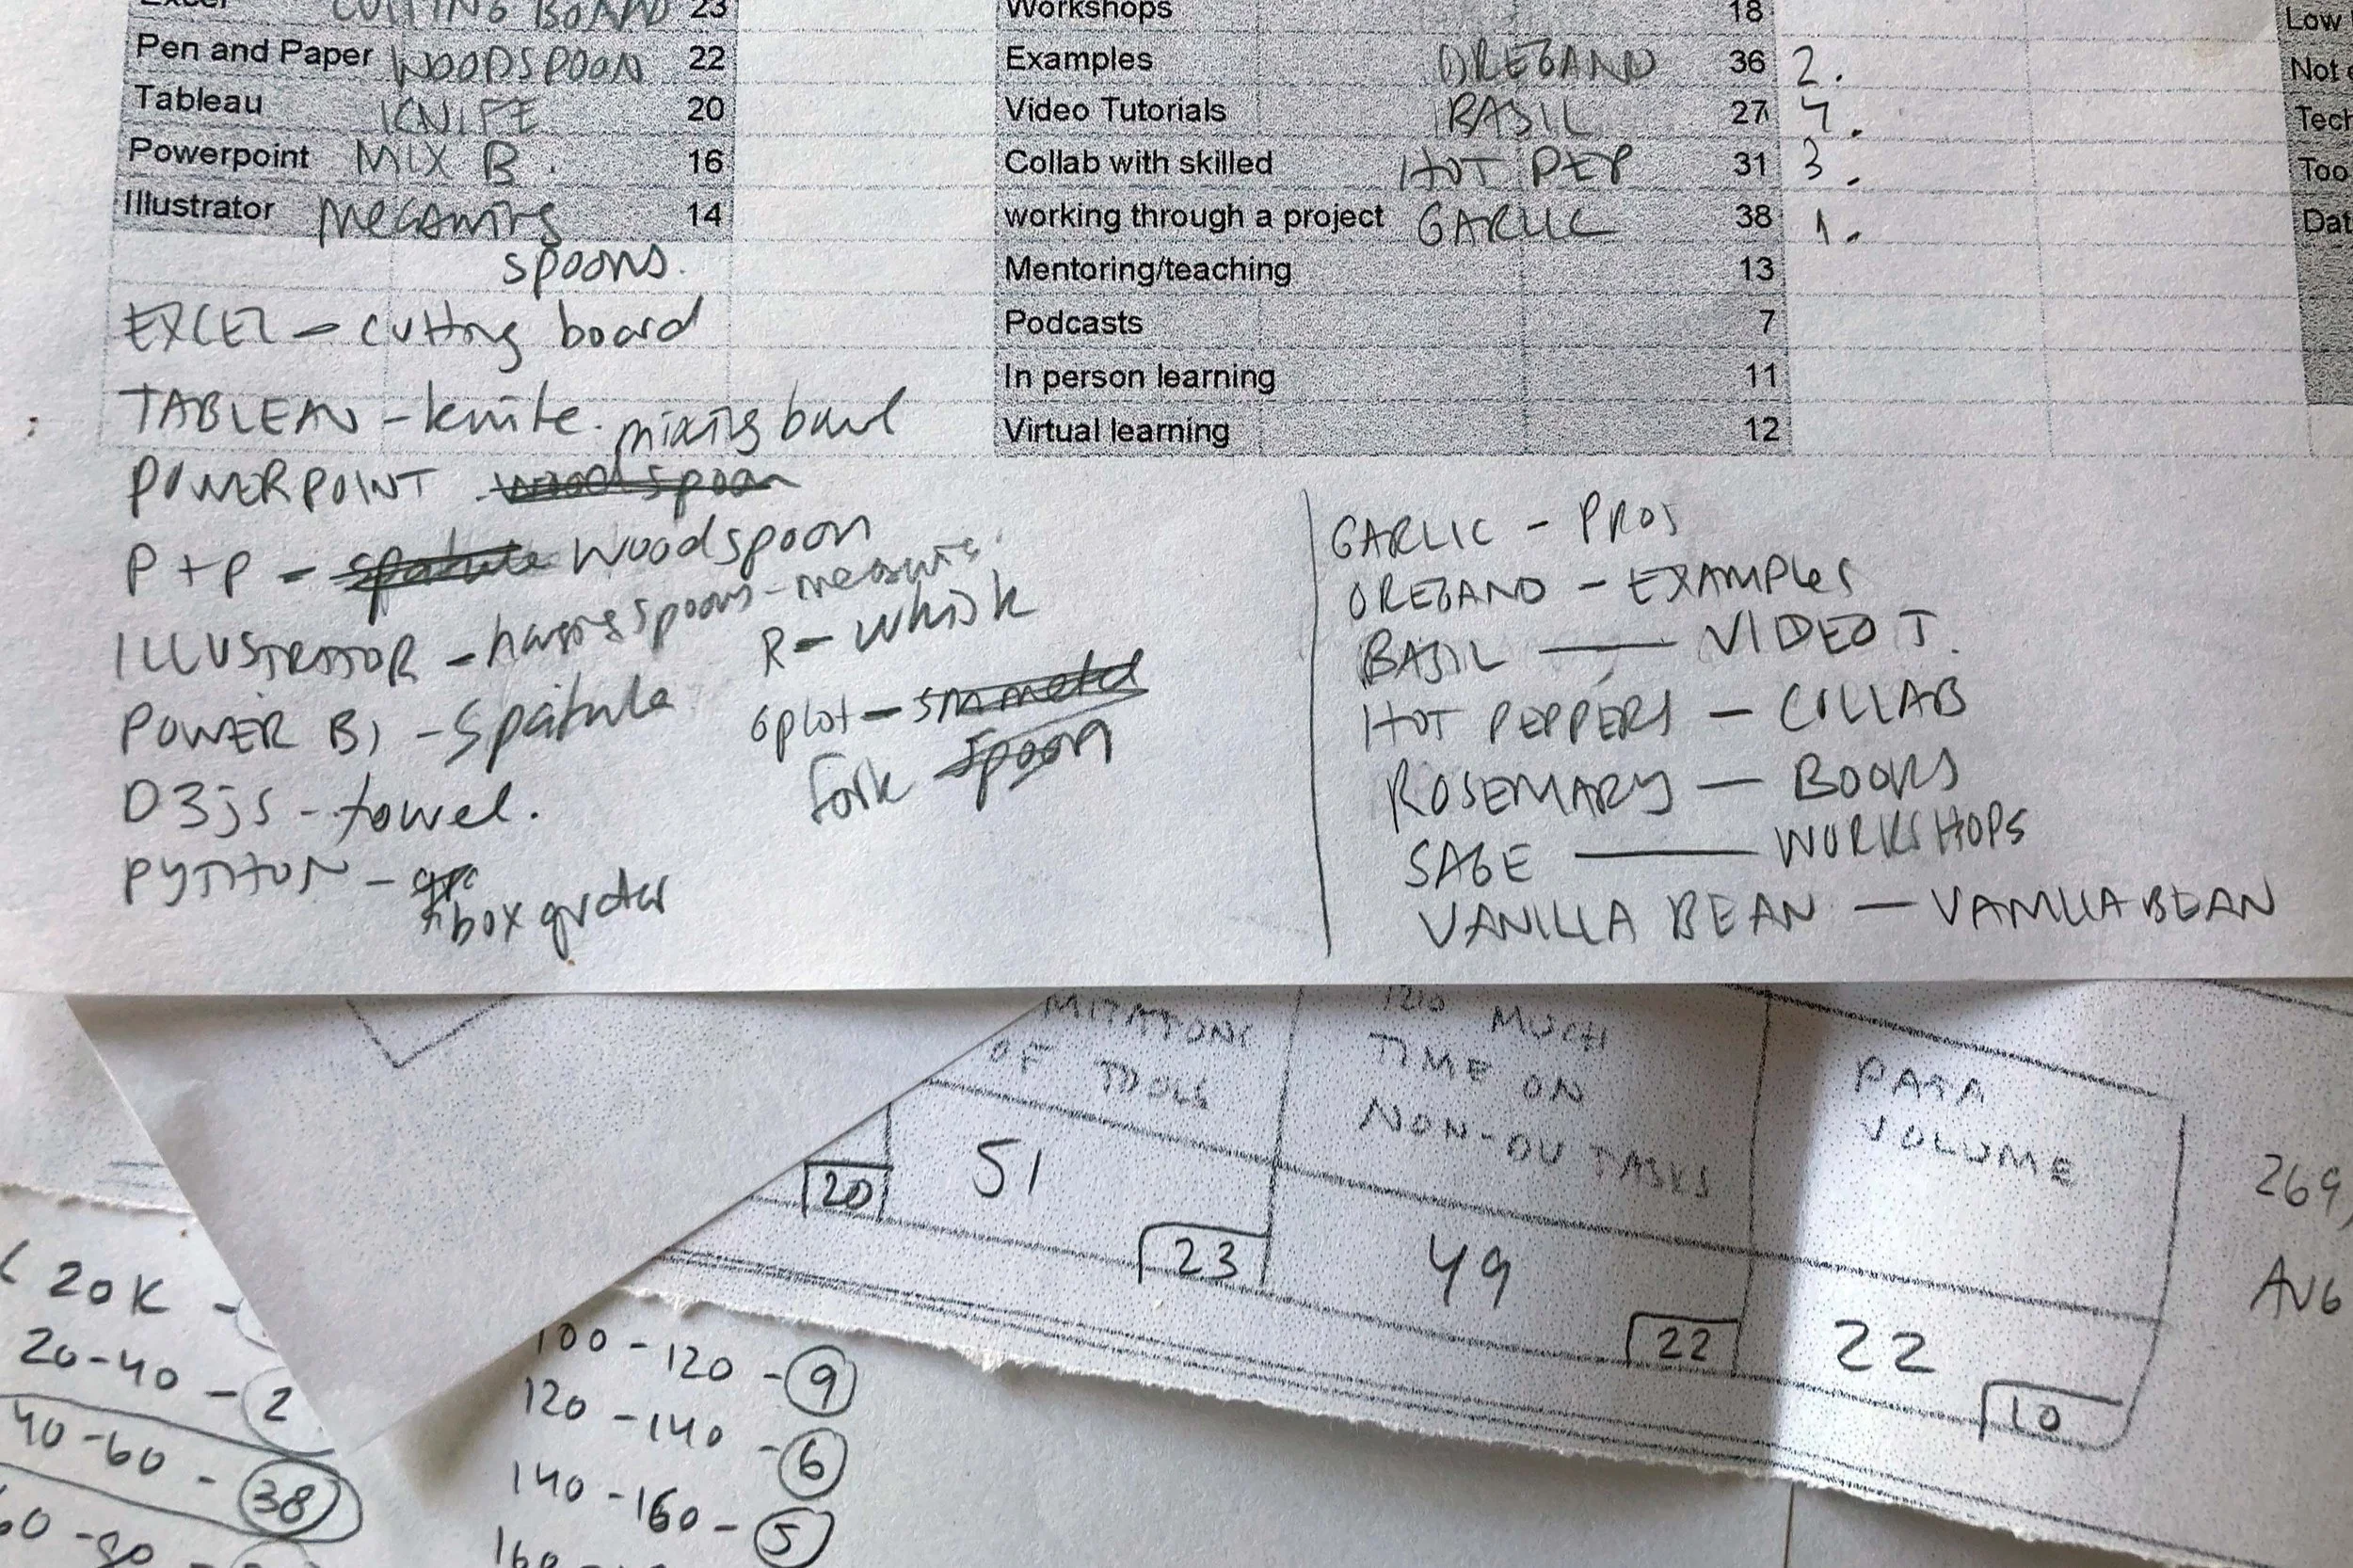 Excel CUTTING BOARD 23
Pen and Paper WOODSPOON 22
Tableau KNIFE 20
Powerpoint MIX B. 16
Illustrator MEASURING 14
spoons.
EXCEL - cutting board
TABLEAU - knife.
mixing bowl
POWERPOINT - wood spoon
P + P - spatula woodspoon
ILLUSTRATOR - spoons - measuring
POWER BI - Spatula
D3js - towel.
PYTHON -
box grater
R - whisk
Gplot - sm metal
fork spoon
Workshops 18
Examples OREGANO 36 2.
Video Tutorials BASIL 27 4.
Collab with skilled HOT PEP 31 3.
working through a project GARLIC 38 1.
Mentoring/teaching 13
Podcasts 7
In person learning 11
Virtual learning 12
Low
Not
Tech
Too
Dat
GARLIC - PROJ
OREGANO - EXAMPLES
BASIL - VIDEO T.
HOT PEPPERS - COLLAB
ROSEMARY - BOOKS
SAGE - WORKSHOPS
VANILLA BEAN - VANILLA BEAN
MITATIONS
OF TOOLS
51
20
23
TOO MUCH
TIME ON
NON-DV TASKS
49
22
DATA
VOLUME
22
10
269
AVG
20K -
20-40 - 2
40-60 - 38
60-80
100-120 - 9
120-140 - 6
140-160 - 5
160